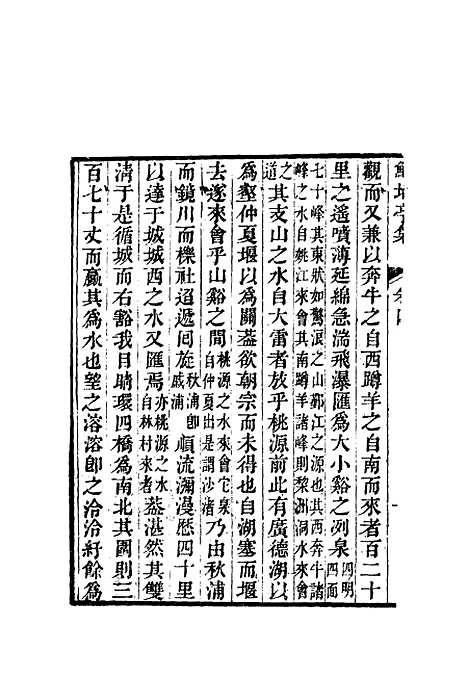 鮚埼亭集　卷四
觀而又兼以奔牛之自西蹲羊之自南而來者百二十
里之遥噴薄延綿急湍飛瀑匯爲大小谿之洌泉四明四面
七十峰其東狀如驚浪之山鄞江之源也其西奔牛諸峰之水自姚江來會其南蹲羊諸峰則棃洲洞水來會
之道其支山之水自大雷者放乎桃源前此有廣德湖以
爲壑仲夏堰以爲關葢欲朝宗而未得也自湖塞而堰
去遂來會乎山谿之間桃源之水來會它泉自仲夏出是謂沙渚乃由秋浦
而鏡川而櫟社迢遞回旋秋浦卽戚浦順流瀰漫歷四十里
以達于城城西之水又匯焉亦桃源之水自林村來者葢湛然其雙
清于是循城而右豁我目睛環四橋爲南北其圍則三
百七十丈而羸其爲水也望之溶溶卽之洽洽紆餘爲